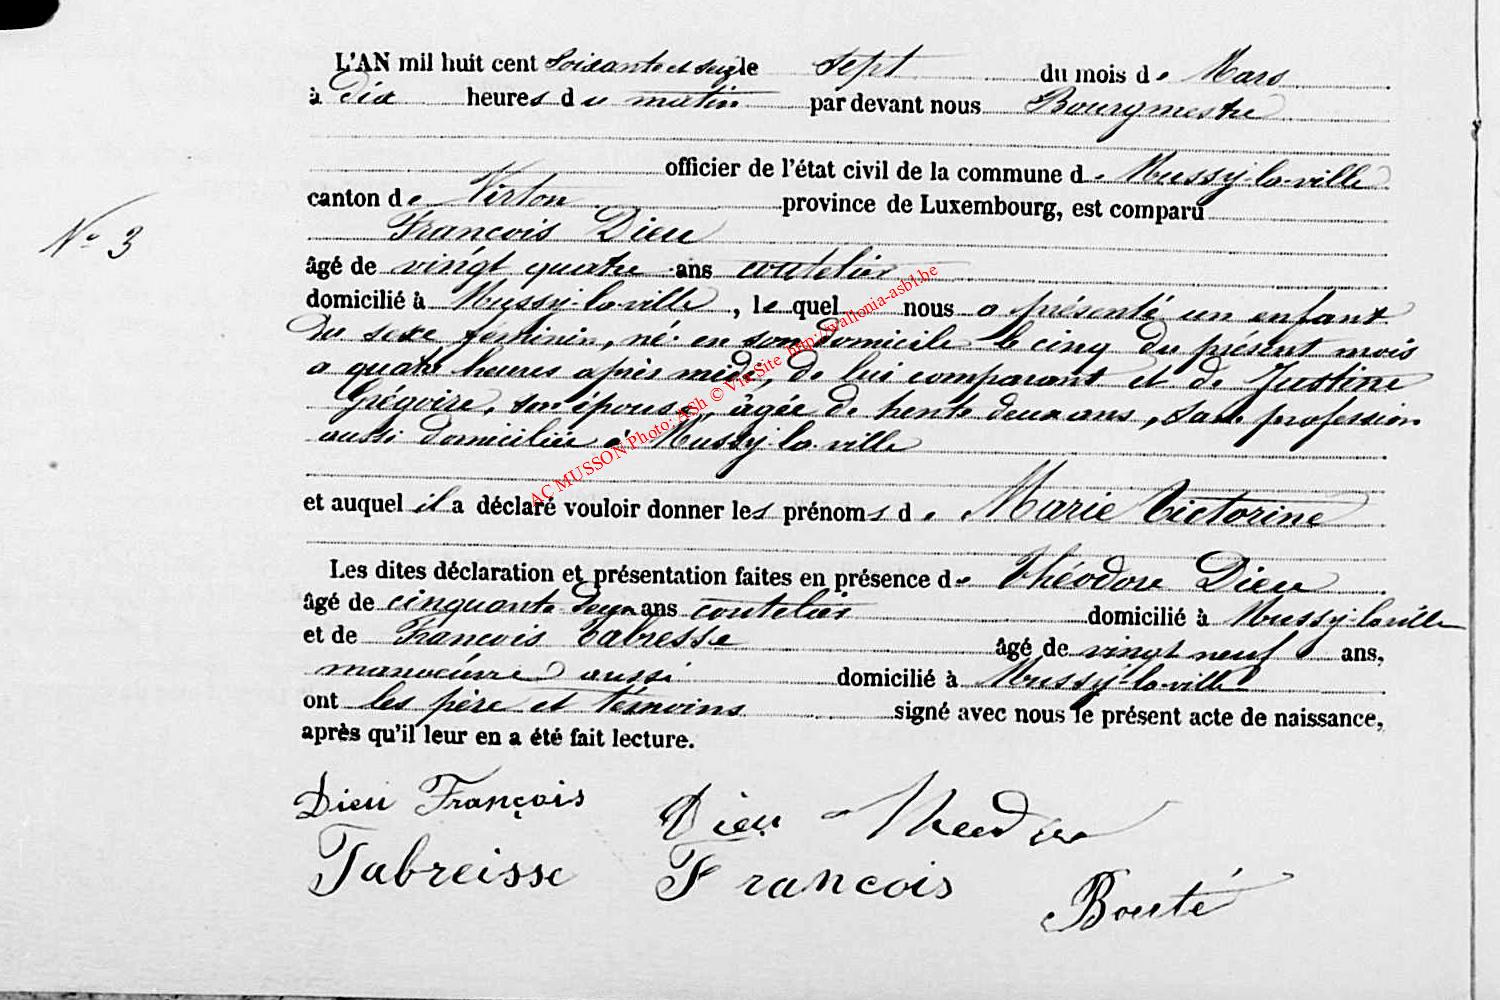 L'AN mil huit cent Soixante et seize le sept du mois de Mars
à dix heures du matin par devant nous Bourgmestre
officier de l'état civil de la commune de Mussy-la-ville
canton de Virton province de Luxembourg, est comparu
N° 3
François Dieu
âgé de vingt quatre ans coutelier
domicilié à Mussy-la-ville, lequel nous a présenté un enfant
du sexe feminin, né en son domicile le cinq du présent mois
a quatre heures après midi, de lui comparant et de Justine
Grégoire, son épouse, âgée de trente deux ans, sans profession
aussi domiciliée à Mussy-la-ville
AC MUSSON Photo: ASh © Via Site http://wallonia-asbl.be
et auquel il a déclaré vouloir donner les prénoms de Marie Victorine
Les dites déclaration et présentation faites en présence de Théodore Dieu
âgé de cinquante deux ans coutelier domicilié à Mussy-la-ville
et de François Tabresse âgé de vingt neuf ans,
manoeuvre aussi domicilié à Mussy-la-ville
ont les père et témoins signé avec nous le présent acte de naissance,
après qu'il leur en a été fait lecture.
Dieu François Dieu
Tabreisse Francois Bouté